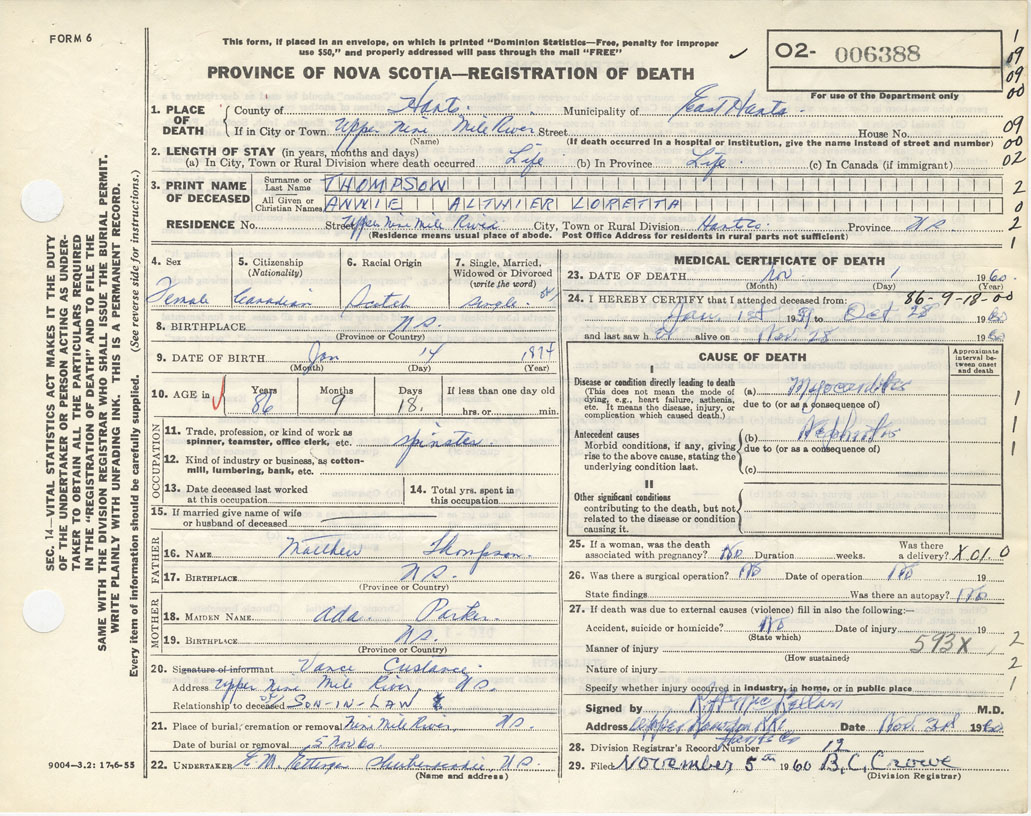 FORM 6
This form, if placed in an envelope, on which is printed "Dominion Statistics—Free, penalty for improper
use $50," and properly addressed will pass through the mail "FREE"
O2- 006388
For use of the Department only
PROVINCE OF NOVA SCOTIA—REGISTRATION OF DEATH
1
09
09
00
09
00
02
2
0
2
1
SEC. 14—VITAL STATISTICS ACT MAKES IT THE DUTY
OF THE UNDERTAKER OR PERSON ACTING AS UNDER-
TAKER TO OBTAIN ALL THE PARTICULARS REQUIRED
IN THE "REGISTRATION OF DEATH" AND TO FILE THE
SAME WITH THE DIVISION REGISTRAR WHO SHALL ISSUE THE BURIAL PERMIT.
WRITE PLAINLY WITH UNFADING INK. THIS IS A PERMANENT RECORD.
Every item of information should be carefully supplied. (See reverse side for instructions.)
1. PLACE OF DEATH
County of Hants Municipality of East Hants
If in City or Town Upper Nine Mile River Street House No.
(Name) (If death occurred in a hospital or institution, give the name instead of street and number)
2. LENGTH OF STAY (in years, months and days)
(a) In City, Town or Rural Division where death occurred Life (b) In Province Life (c) In Canada (if immigrant)
3. PRINT NAME OF DECEASED
Surname or Last Name THOMPSON
All Given or Christian Names ANNIE ALTHIER LORETTA
RESIDENCE No. Street Upper Nine Mile River City, Town or Rural Division Hants Co Province NS
(Residence means usual place of abode. Post Office Address for residents in rural parts not sufficient)
4. Sex Female
5. Citizenship (Nationality) Canadian
6. Racial Origin Scotch
7. Single, Married, Widowed or Divorced (write the word) Single
8. BIRTHPLACE N.S.
(Province or Country)
9. DATE OF BIRTH Jan 14 1874
(Month) (Day) (Year)
10. AGE in Years 86 Months 9 Days 18 If less than one day old hrs. or min.
OCCUPATION
11. Trade, profession, or kind of work as
spinner, teamster, office clerk, etc. Spinster
12. Kind of industry or business, as cotton-
mill, lumbering, bank, etc.
13. Date deceased last worked
at this occupation
14. Total yrs. spent in
this occupation
15. If married give name of wife
or husband of deceased
FATHER
16. NAME Matthew Thompson
17. BIRTHPLACE N.S.
(Province or Country)
MOTHER
18. MAIDEN NAME Ada Parker
19. BIRTHPLACE N.S.
(Province or Country)
20. Signature of informant Vance Custance
Address Upper Nine Mile River, N S.
Relationship to deceased SON-IN-LAW
21. Place of burial, cremation or removal Nine Mile River, N S.
Date of burial or removal 5 Nov 60
22. UNDERTAKER N S.
(Name and address)
9004—3.2: 17,6-55
MEDICAL CERTIFICATE OF DEATH
23. DATE OF DEATH Nov 1 1960
(Month) (Day)
86-9-18-00
24. I HEREBY CERTIFY that I attended deceased from:
Jan. 1st 19 to Oct 28 1960
and last saw h alive on 28 1960
CAUSE OF DEATH
Approximate
interval be-
tween onset
and death
I
Disease or condition directly leading to death
(This does not mean the mode of
dying, e.g., heart failure, asthenia,
etc. It means the disease, injury, or
complication which caused death.)
(a) Myocarditis
due to (or as a consequence of)
1
Antecedent causes
Morbid conditions, if any, giving
rise to the above cause, stating the
underlying condition last.
(b) Nephritis
due to (or as a consequence of)
(c)
1
1
II
Other significant conditions
contributing to the death, but not
related to the disease or condition
causing it.
25. If a woman, was the death
associated with pregnancy? No Duration weeks. Was there
a delivery? X 01 0
26. Was there a surgical operation? No Date of operation No 19
State findings Was there an autopsy? No
27. If death was due to external causes (violence) fill in also the following:—
Accident, suicide or homicide? No Date of injury 19
(State which)
Manner of injury 593X 2
(How sustained)
Nature of injury 2
Specify whether injury occurred in industry, in home, or in public place 1
Signed by M.D.
Address Upper Rawdon Hants Co Date Nov. 3rd 1960
28. Division Registrar's Record Number 12
29. Filed November 5th 1960 B.C. Crowe
(Division Registrar)